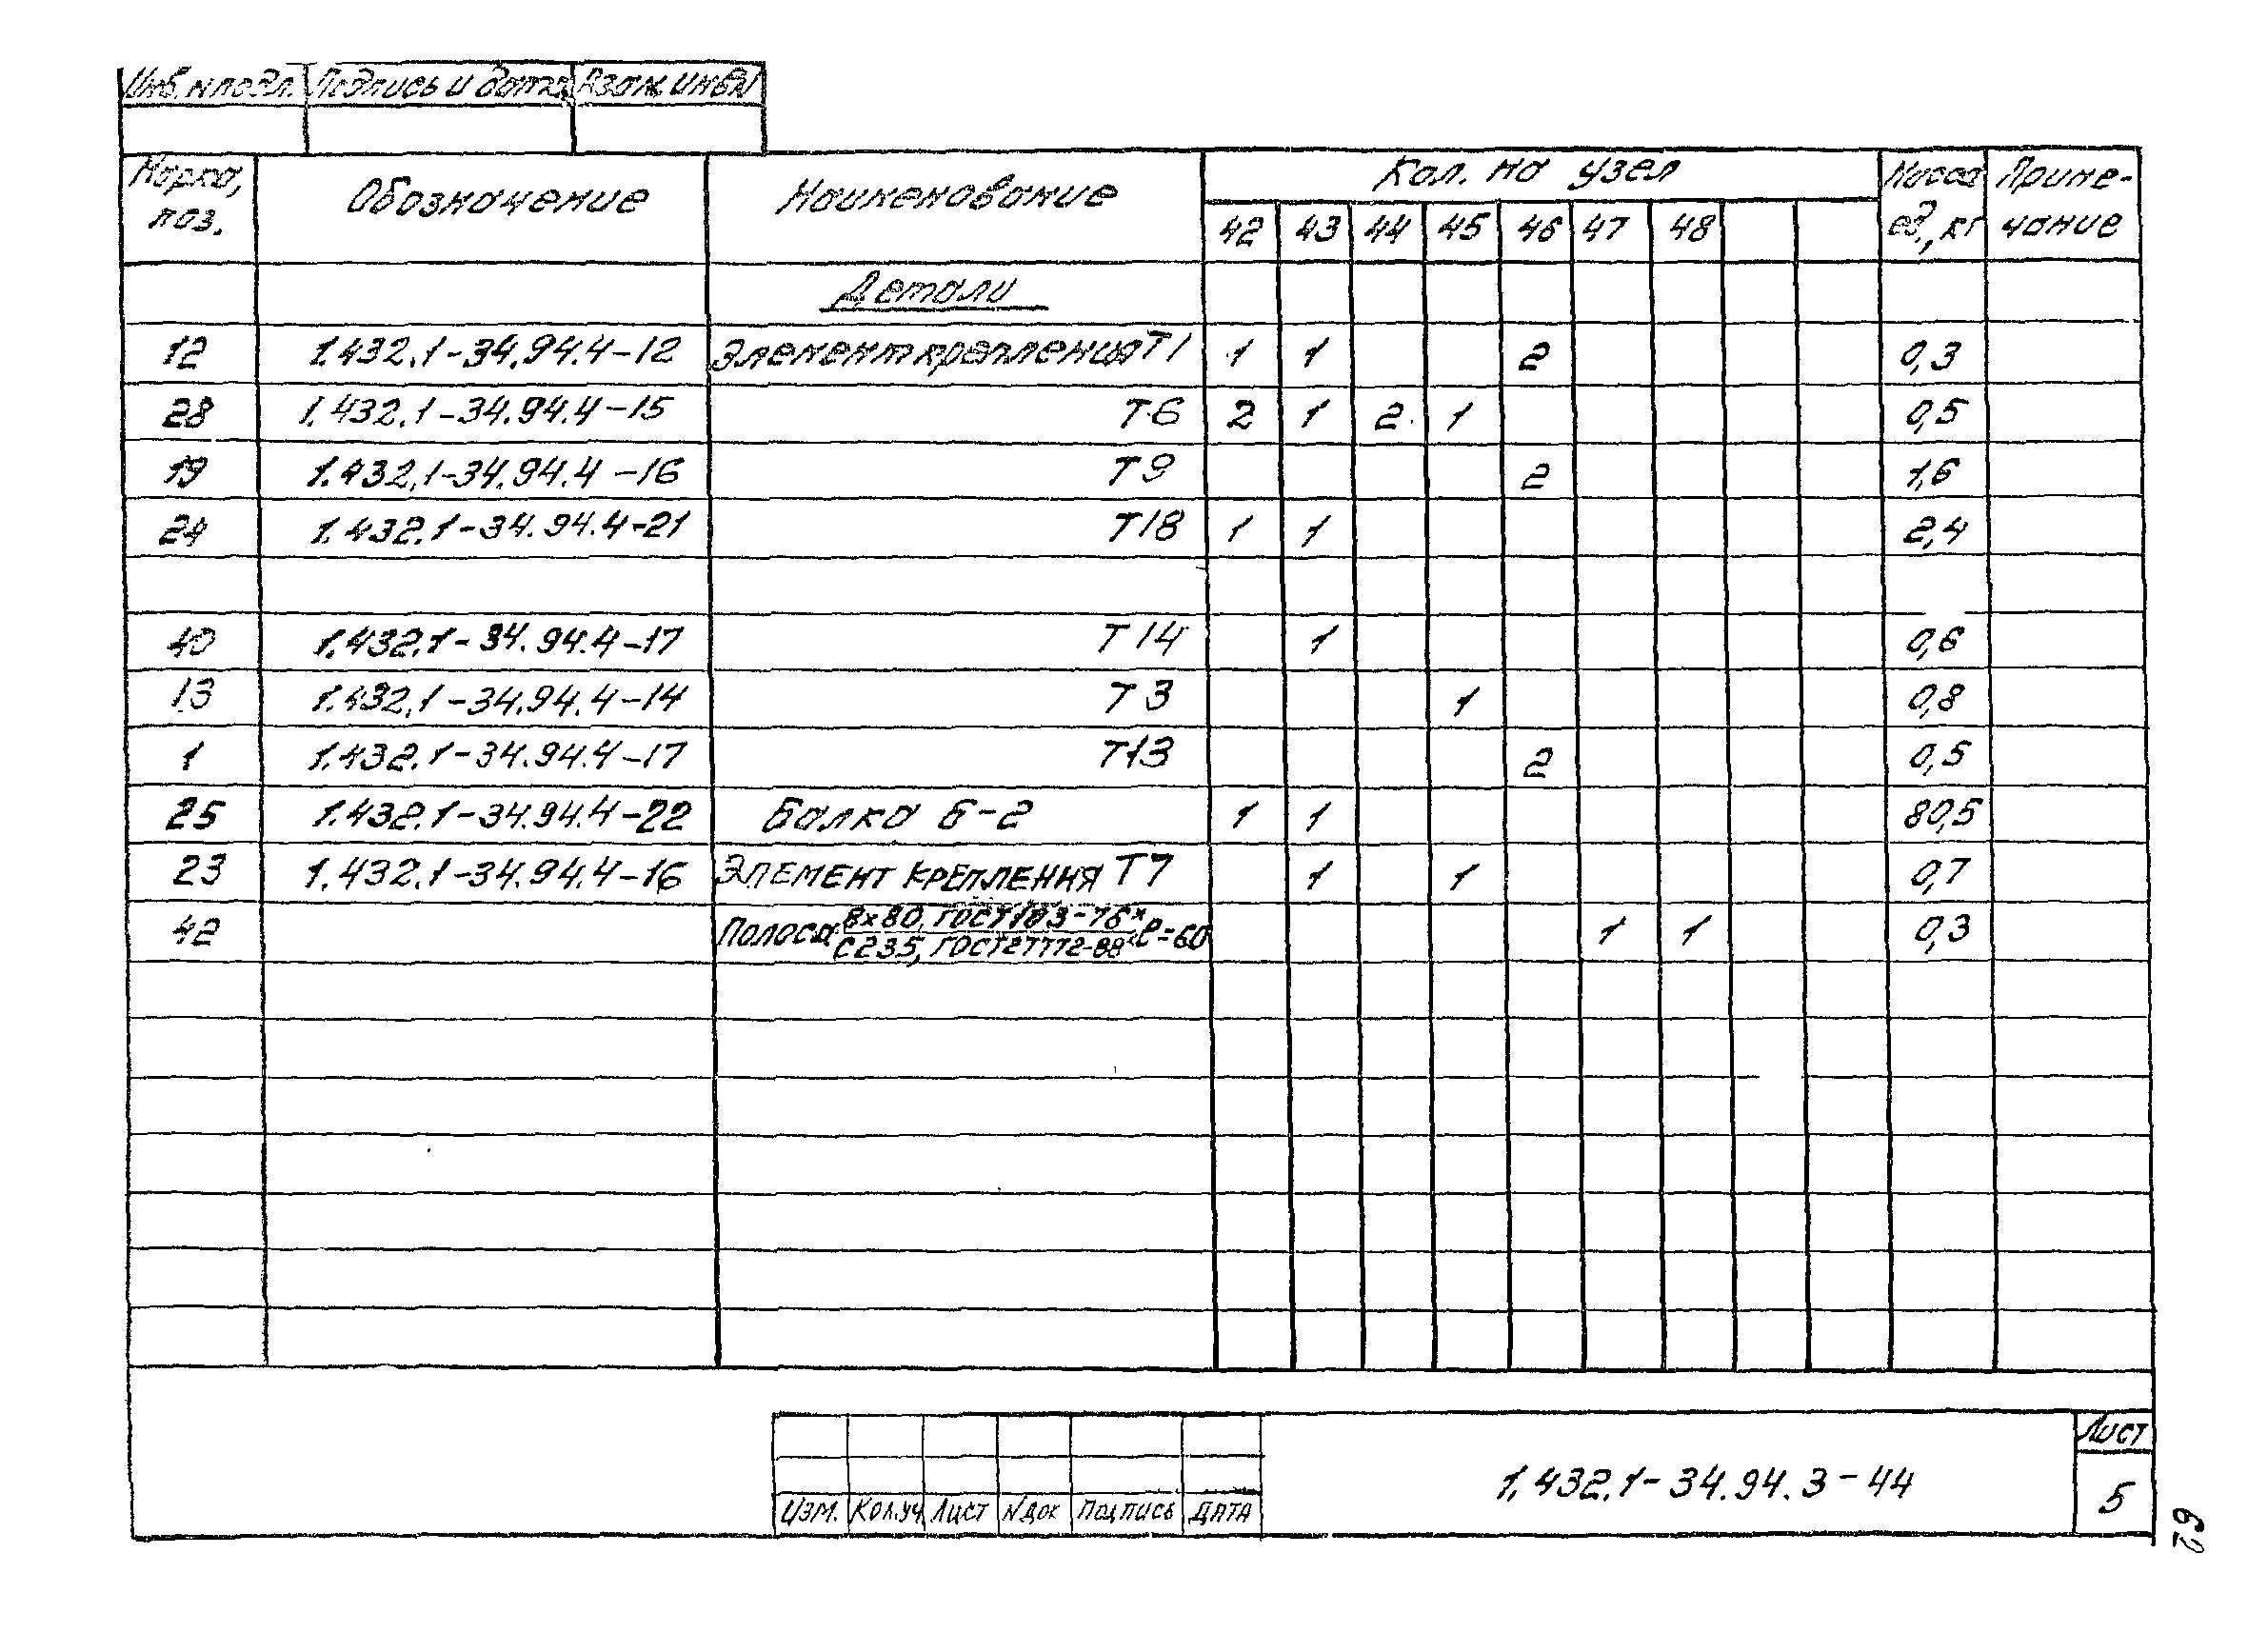 Инв. N подл. Подпись и дата Взам. инв N
Марка, поз. Обозначение Наименование Кол. на узел Масса ед., кг Приме-чание
42 43 44 45 46 47 48
Детали
12 1.432.1-34.94.4-12 Элемент крепления Т1 1 1 2 0,3
28 1.432.1-34.94.4-15 Т6 2 1 2 1 0,5
19 1.432.1-34.94.4-16 Т9 2 1,6
24 1.432.1-34.94.4-21 Т18 1 1 2,4
40 1.432.1-34.94.4-17 Т14 1 0,6
13 1.432.1-34.94.4-14 Т3 1 0,8
1 1.432.1-34.94.4-17 Т13 2 0,5
25 1.432.1-34.94.4-22 Балка Б-2 1 1 80,5
23 1.432.1-34.94.4-16 Элемент крепления Т7 1 1 0,7
42 Полоса 8х80, ГОСТ 103-76* / С235, ГОСТ 27772-88* ℓ=60 1 1 0,3
Изм. Кол.уч Лист N док Подпись Дата
1.432.1-34.94.3-44
Лист
5
62